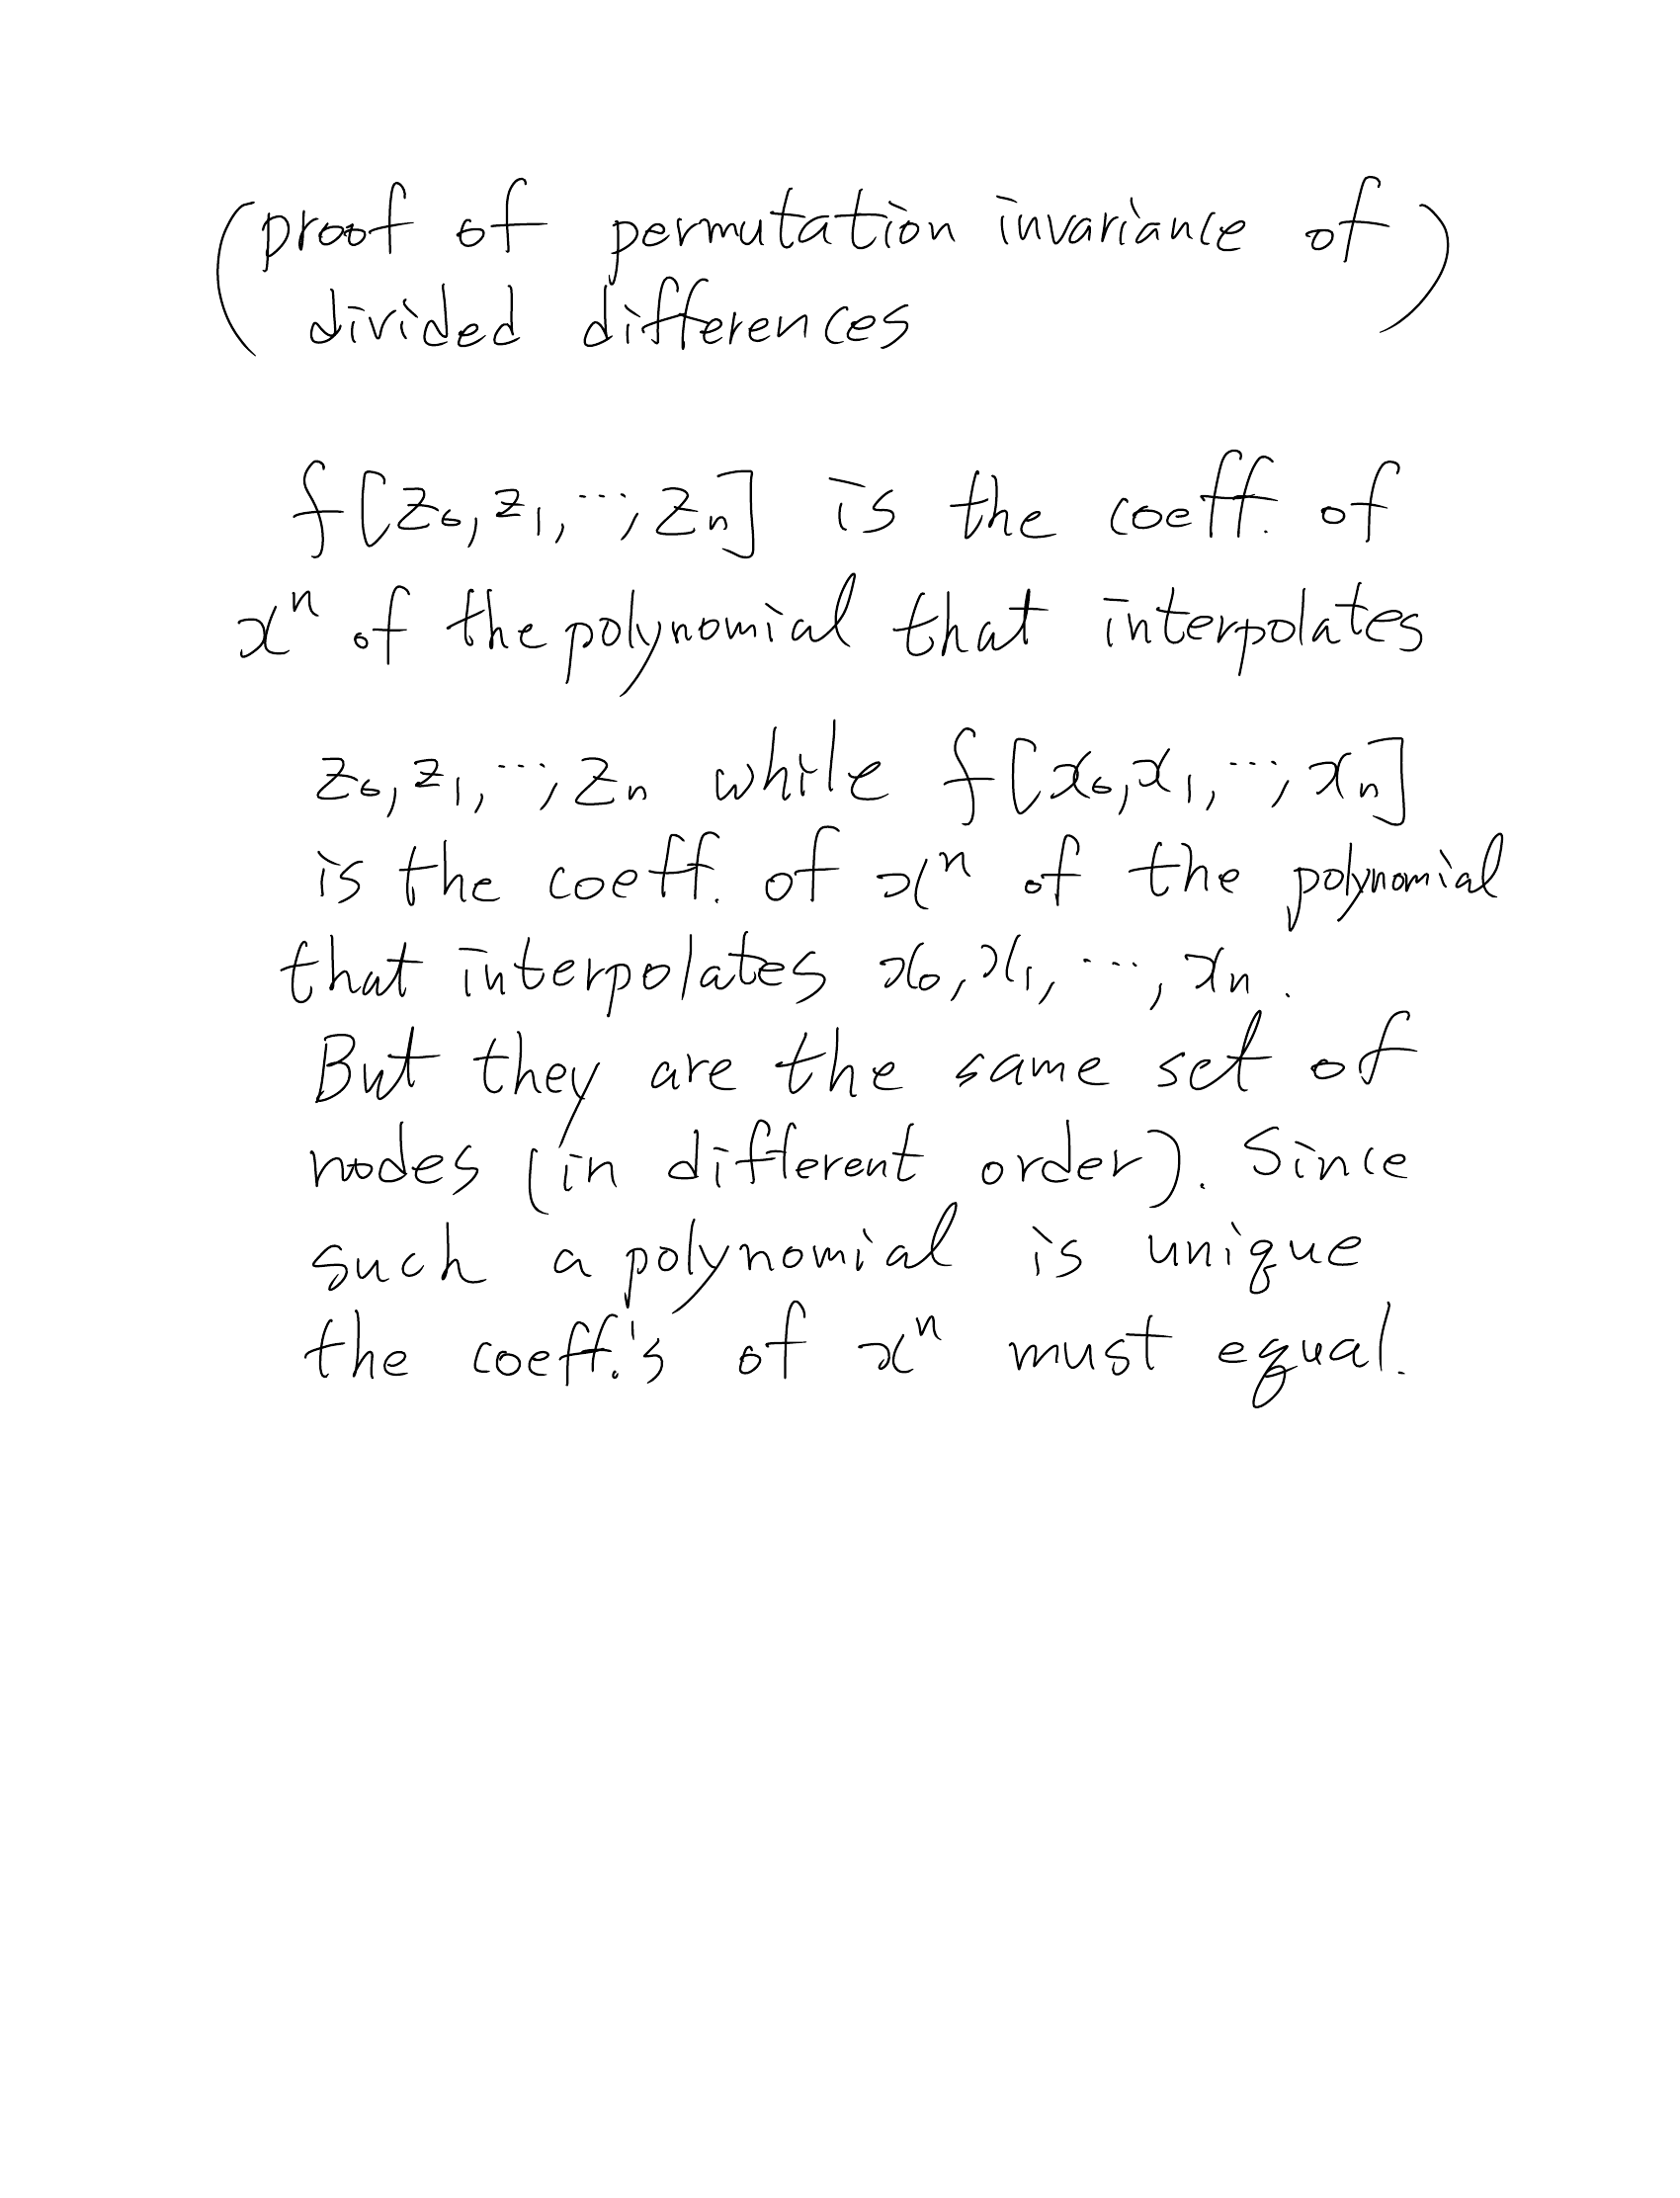 (proof of permutation invariance of
divided differences)
f[z₀, z₁, ⋯, zₙ] is the coeff. of
xⁿ of the polynomial that interpolates
z₀, z₁, ⋯, zₙ while f[x₀, x₁, ⋯, xₙ]
is the coeff. of xⁿ of the polynomial
that interpolates x₀, x₁, ⋯, xₙ.
But they are the same set of
nodes (in different order). Since
such a polynomial is unique
the coeff.'s of xⁿ must equal.